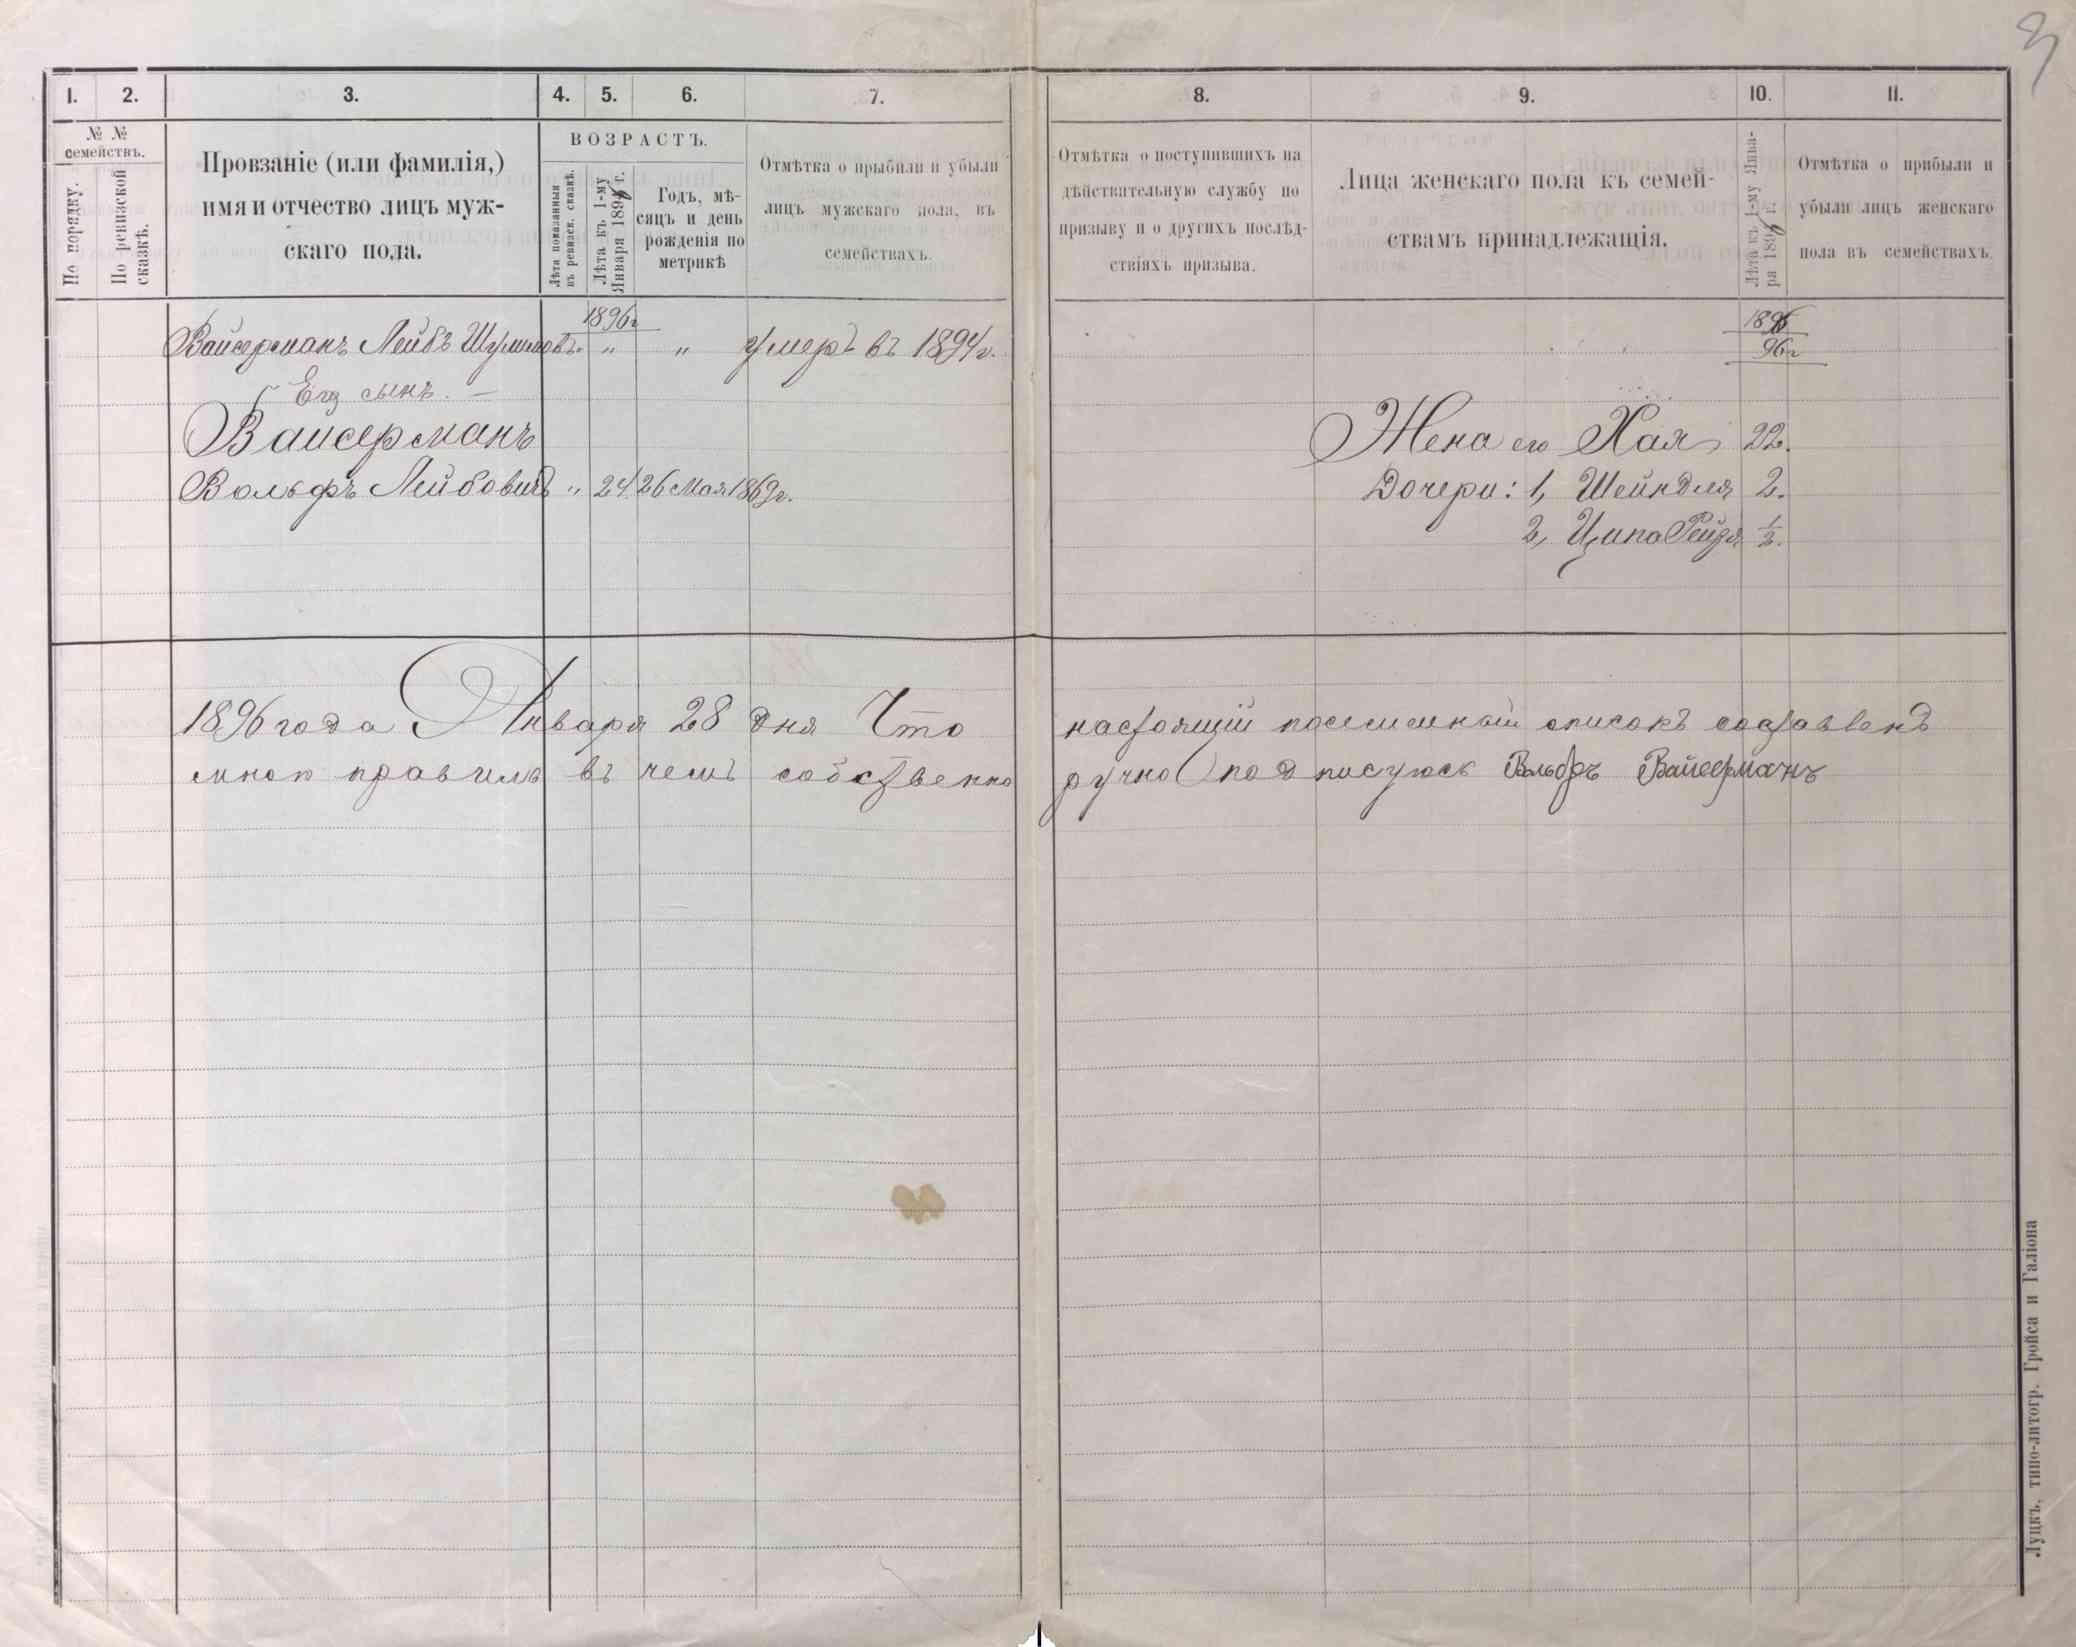 1. 2. 3. 4. 5. 6. 7. 8. 9. 10. 11.
№ № семействъ.
По порядку.
По ревизской сказкѣ.
Провзаніе (или фамилія,)
имя и отчество лицъ муж-
скаго пола.
ВОЗРАСТЪ.
Лѣта показанныя
въ ревизск. сказкѣ.
Лѣта къ 1-му
Января 189 г.
Годъ, мѣ-
сяцъ и день
рожденія по
метрикѣ
Отмѣтка о прыбыли и убыли
лицъ мужскаго пола, въ
семействахъ.
Отмѣтка о поступившихъ на
дѣйствательную службу по
призыву и о другихъ послѣд-
ствіяхъ призыва.
Лица женскаго пола къ семей-
ствамъ принадлежащія.
Лѣта къ 1-му Янва-
ря 189 г.
Отмѣтка о прибыли и
убыли лицъ женскаго
пола въ семействахъ.
1896г
Вайсерманъ Лейбъ Шулимовъ. " " умеръ въ 1894г.
96г
Его сынъ. —
Вайсерманъ Жена его Хая 22.
Вольфъ Лейбовичъ " 24 26 Мая 1869г. Дочери: 1, Шейндля 2.
2, Ципа Рейзя ½.
1896 года Января 28 дня Что настоящій посемейный списокъ составленъ
мною правильно въ чемъ собственно ручно подписуюсь Вольфъ Вайсерманъ
Луцкъ, типо-литогр. Гройса и Галіона